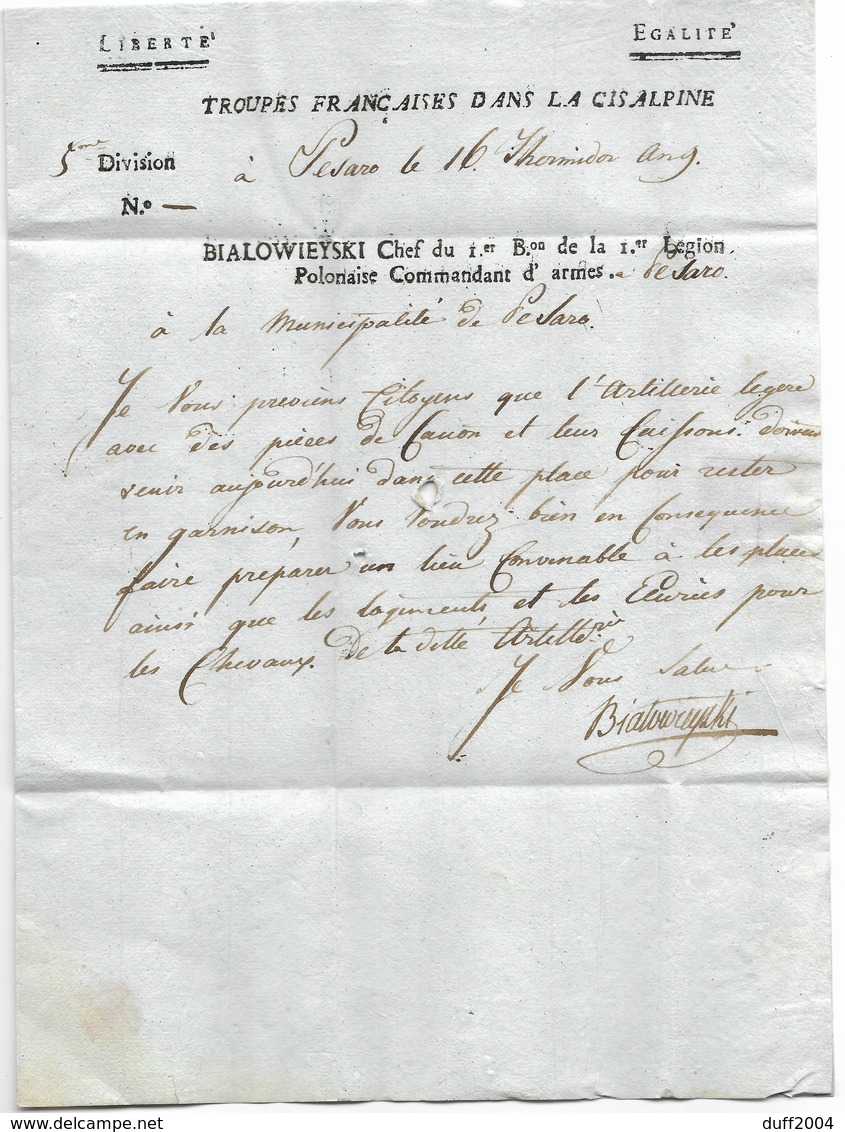 LIBERTE' EGALITE'
TROUPES FRANÇAISES DANS LA CISALPINE
5eme Division à Pesaro le 16. Thermidor an 9.
N.o —
BIALOWIEYSKI Chef du 1.er B.on de la 1.er Legion
Polonaise Commandant d' armes. a Pesaro.
à la Municipalité de Pesaro.
Je Vous previens Citoyens que l'Artillerie legere
avec des pièces de Canon et leur Caissons doivent
venir aujourd'hui dans cette place pour rester
en garnison, Vous Voudrez bien en Consequence
faire préparer un lieu Convenable à les placer
ainsi que les logements et les Ecuries pour
les Chevaux. De la ditte Artillerie
Je Vous Salue
Bialowieyski
duff2004